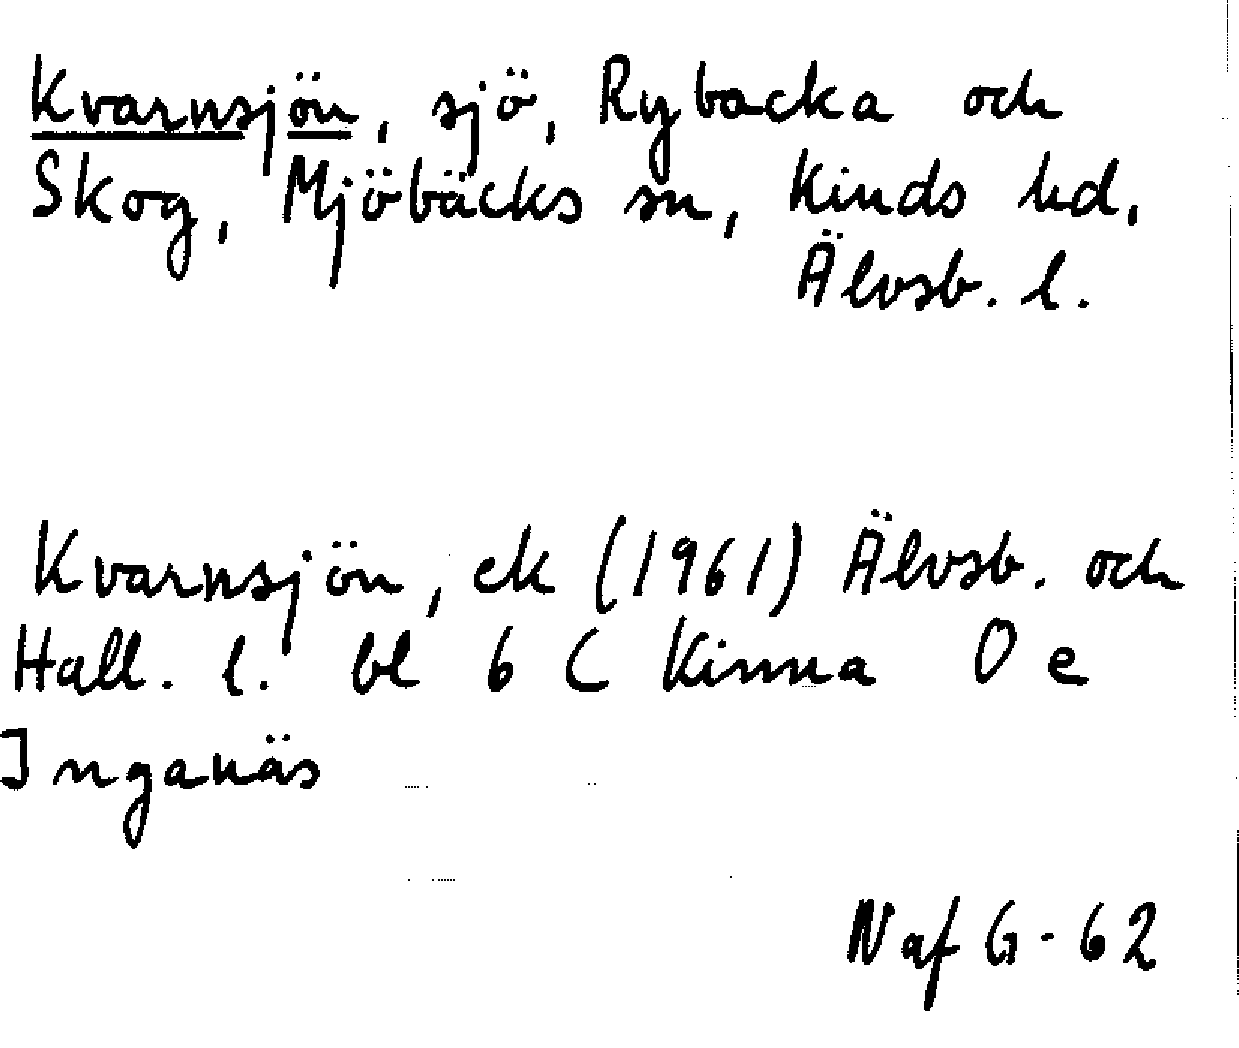 Kvarnsjön, sjö, Rybacka och
Skog, Mjöbäcks sn, Kinds hd,
Älvsb. l.
Kvarnsjön, ek (1961) Älvsb. och
Hall. l. bl 6 C Kinna 0 e
Inganäs
N af G - 62